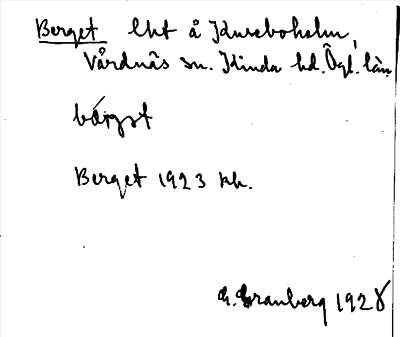 Berget lht å Kuseboholm,
Vårdnäs sn. Kinda hd. Ögl. län
bárgət
Berget 1923 kb.
G. Granberg 1928